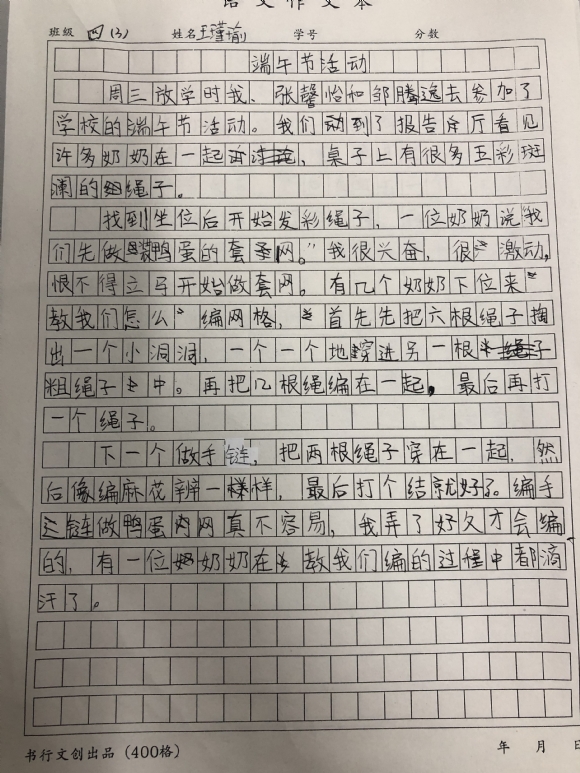 语文作文本
班级 四(3) 姓名 王瑾瑜 学号 分数
端午节活动
周三放学时我、张馨怡和邹腾逸去参加了
学校的端午节活动。我们到了报告厅看见
许多奶奶在一起，桌子上有很多五彩斑
澜的绳子。
找到坐位后开始发彩绳子，一位奶奶说我
们先做装鸭蛋的套网。”我很兴奋，很激动，
恨不得立马开始做套网。有几个奶奶下位来
教我们怎么编网格，首先先把六根绳子掏
出一个小洞洞，一个一个地穿进另一根
粗绳子中。再把几根绳编在一起，最后再打
一个绳子。
下一个做手链，把两根绳子穿在一起，然
后像编麻花辫一样，最后打个结就好了。编手
链做鸭蛋网真不容易，我弄了好久才会编
的，有一位奶奶在教我们编的过程中都滴
汗了。
书行文创出品（400格） 年 月 日